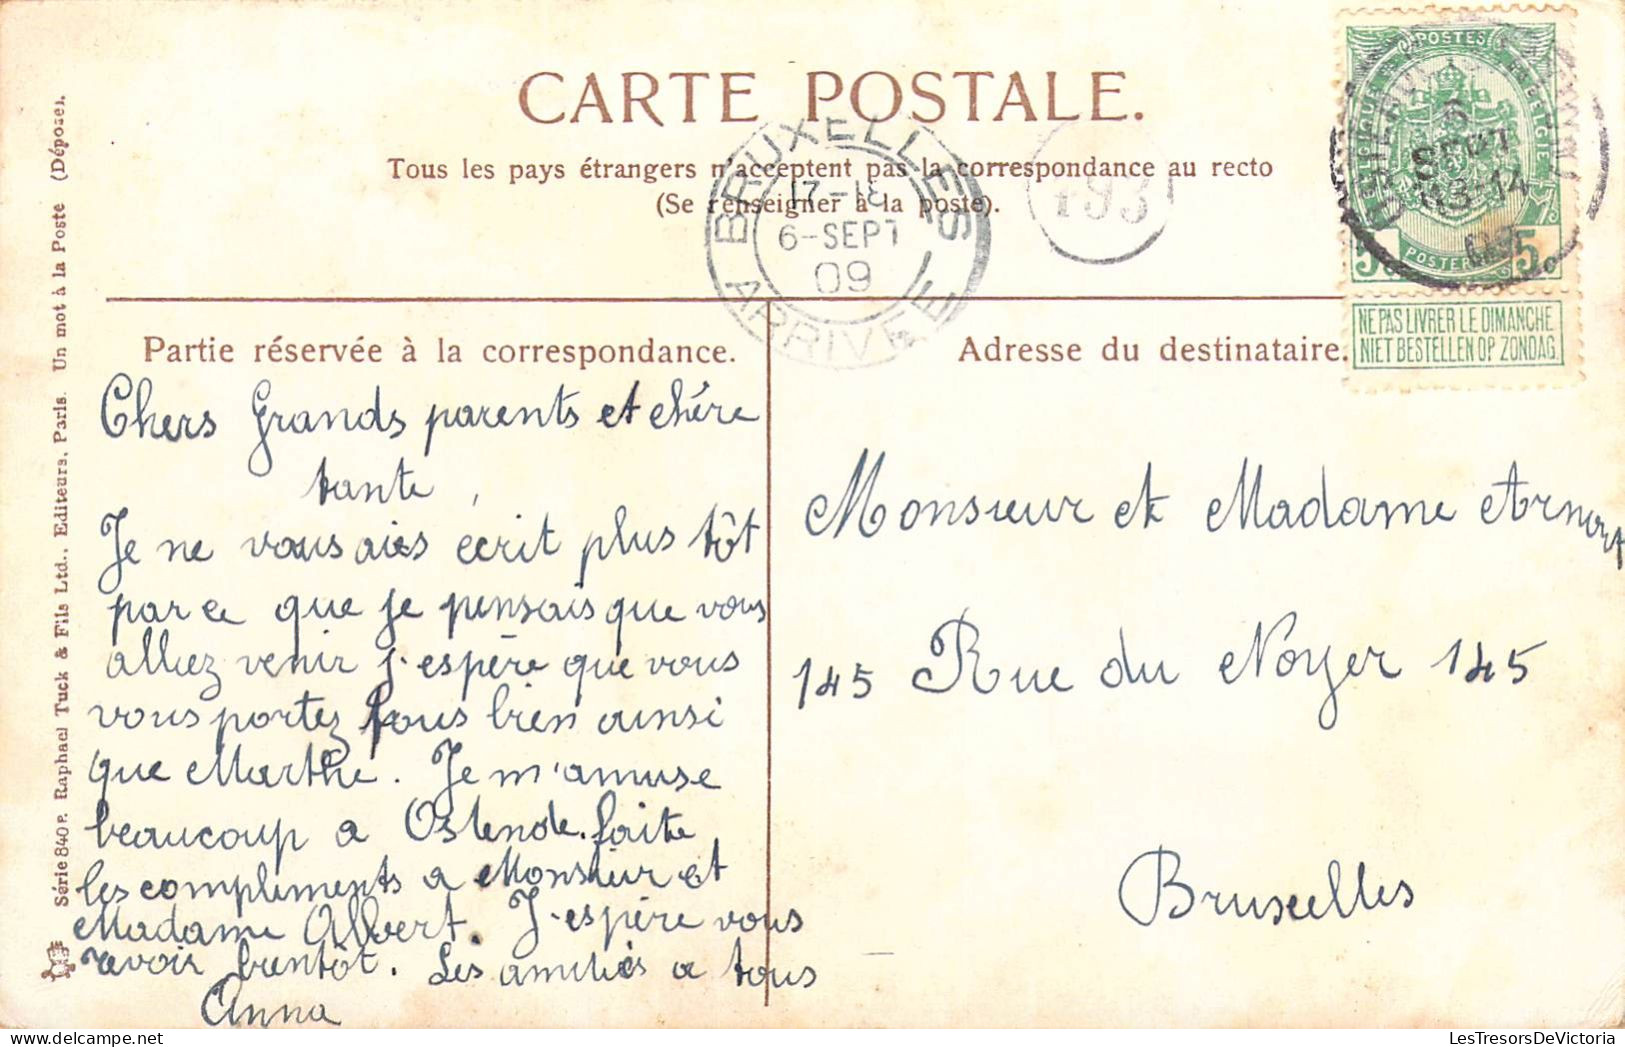 CARTE POSTALE.
Tous les pays étrangers n'acceptent pas la correspondance au recto
(Se renseigner à la poste).
BRUXELLES
17-18
6-SEPT
09
ARRIVÉE
493
POSTES
BELGIQUE BELGIË
POSTERIJEN
5c 5c
6
SEPT
13-14
NE PAS LIVRER LE DIMANCHE
NIET BESTELLEN OP ZONDAG.
Série 840 P. Raphael Tuck & Fils Ltd., Editeurs, Paris. Un mot à la Poste (Déposé).
Partie réservée à la correspondance.
Chers Grands parents et chére
tante,
Je ne vous ais écrit plus tôt
parce que je pensais que vous
alliez venir j'espère que vous
vous portez tous bien ainsi
que Marthe. Je m'amuse
beaucoup a Ostende. faite
les compliments a Monsieur et
Madame Albert. J'espère vous
revoir bientôt. Les amitiés a tous
Anna
Adresse du destinataire.
Monsieur et Madame
145 Rue du Noyer 145
Bruxelles
LesTresorsDeVictoria